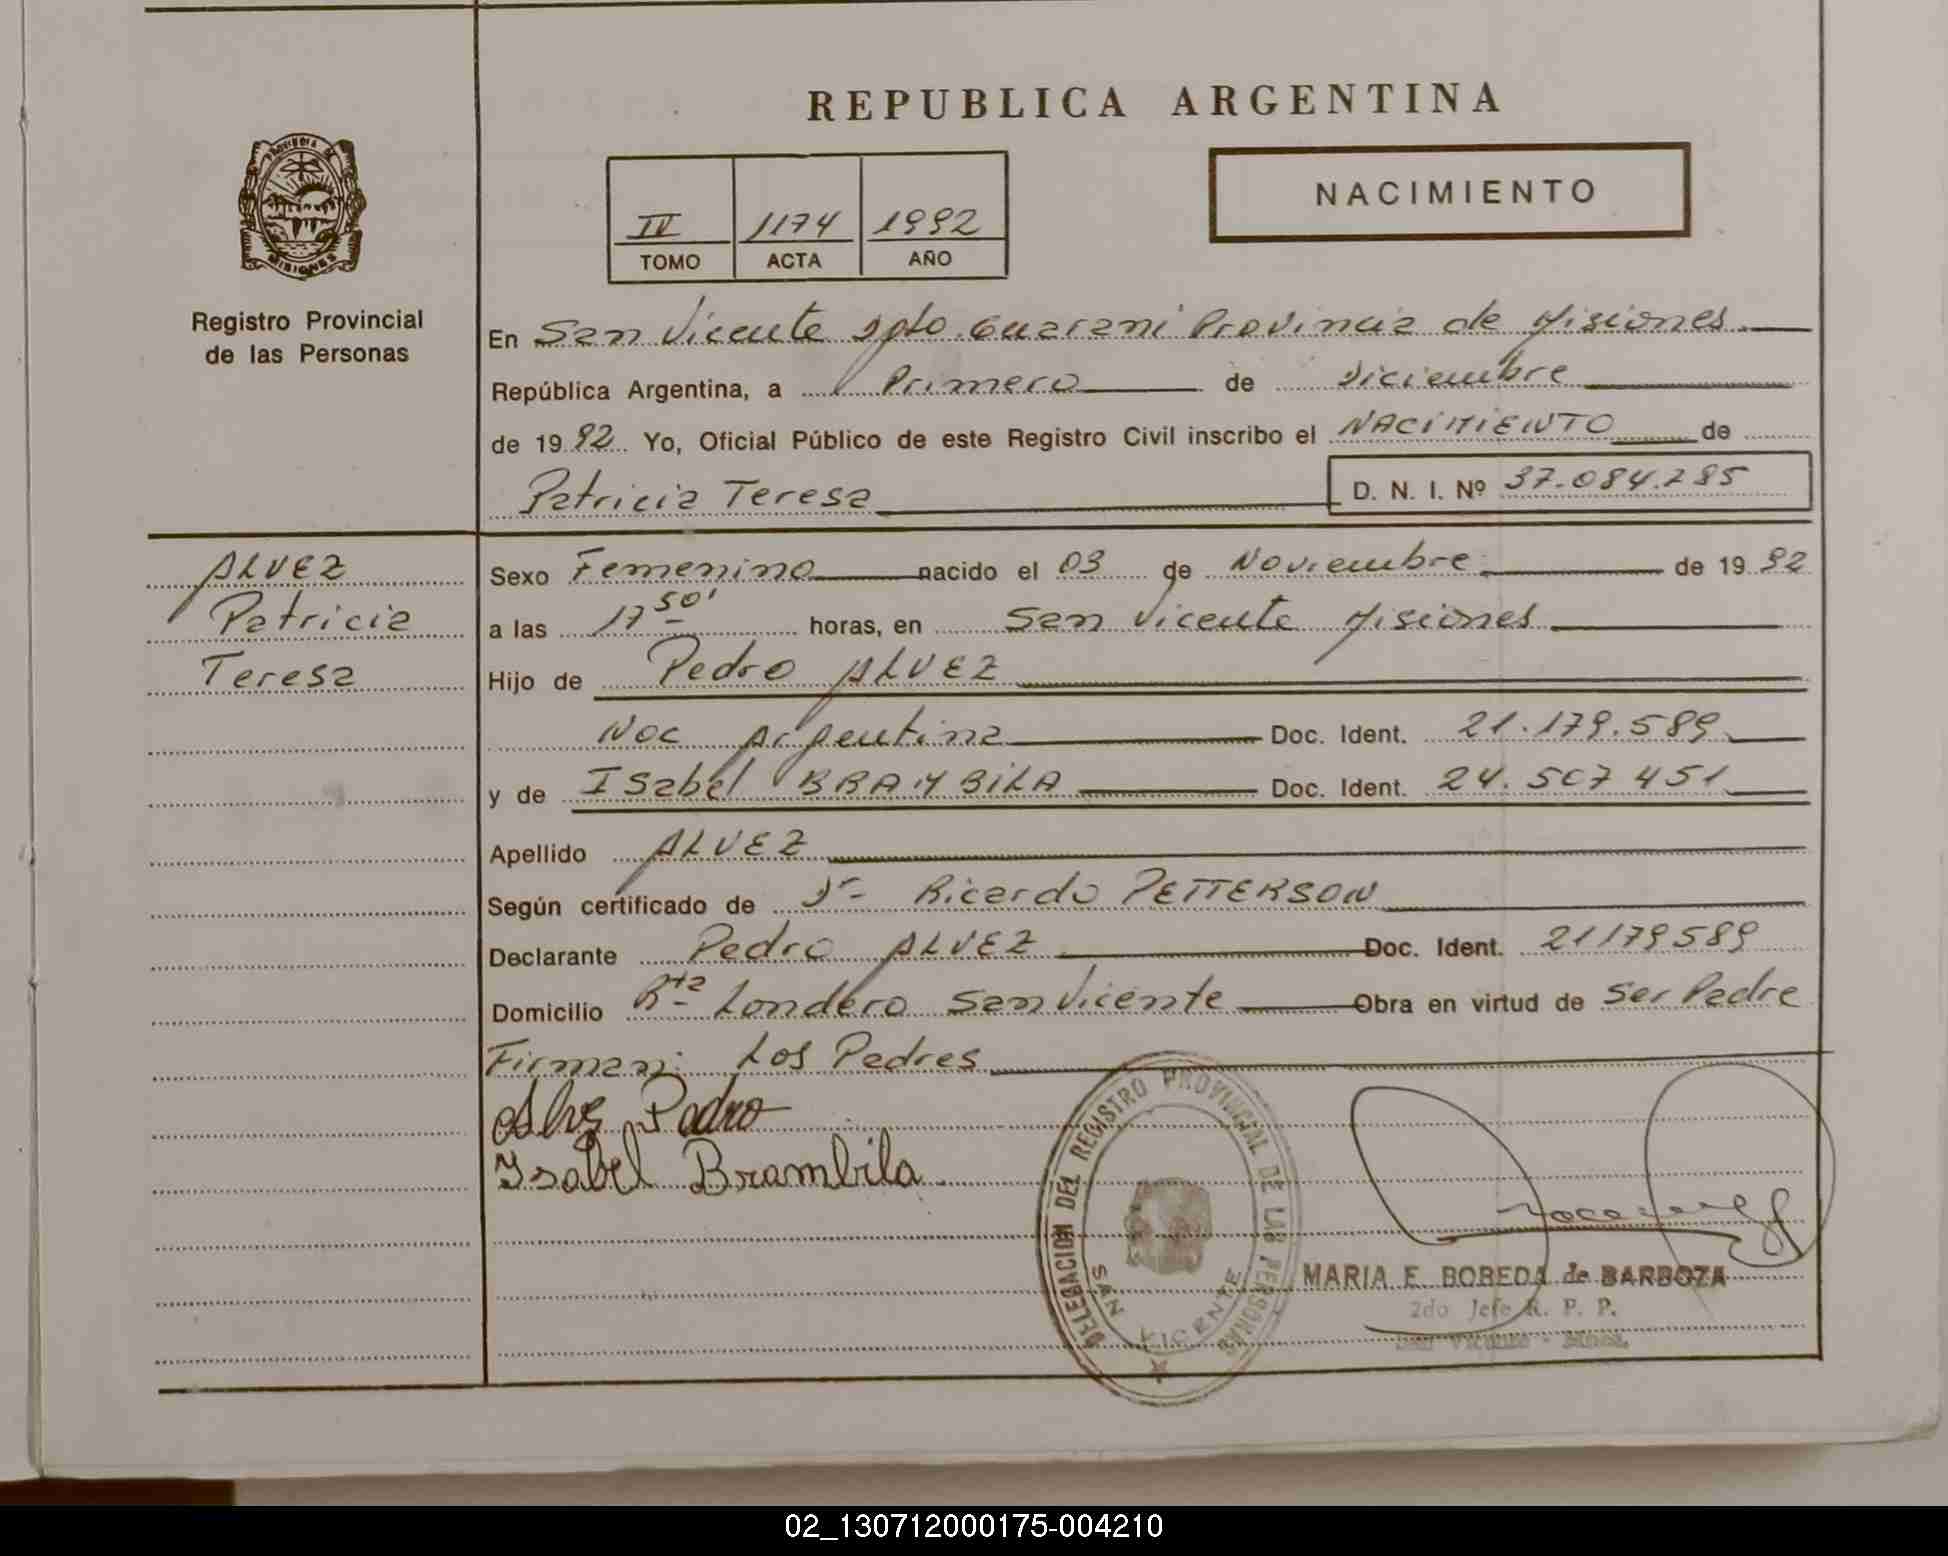 REPUBLICA ARGENTINA
PROVINCIA DE
MISIONES
NACIMIENTO
IV 1174 1992
TOMO ACTA AÑO
Registro Provincial
de las Personas
En San Vicente Dpto. Guarani Provincia de Misiones
República Argentina, a Primero de Diciembre
de 1992 Yo, Oficial Público de este Registro Civil inscribo el NACIMIENTO de
Patricia Teresa D. N. I. Nº 37.084.285
ALVEZ
Patricia
Teresa
Sexo Femenino nacido el 03 de Noviembre de 1992
a las 17 50' horas, en San Vicente Misiones
Hijo de Pedro ALVEZ
Nac Argentina Doc. Ident. 21.179.589
y de ISabel BRAMBILA Doc. Ident. 24.507 451
Apellido ALVEZ
Según certificado de Dr Ricardo PETTERSON
Declarante Pedro ALVEZ Doc. Ident. 21179589
Domicilio Rta Londero San Vicente Obra en virtud de Ser Padre
Firman: Los Padres
Alvez Pedro
Isabel Brambila
DELEGACION DEL REGISTRO PROVINCIAL DE LAS PERSONAS
SAN VICENTE
MARIA E. BOBEDA de BARBOZA
2do Jefe R. P. P.
San Vicente - Mnes.
02_130712000175-004210